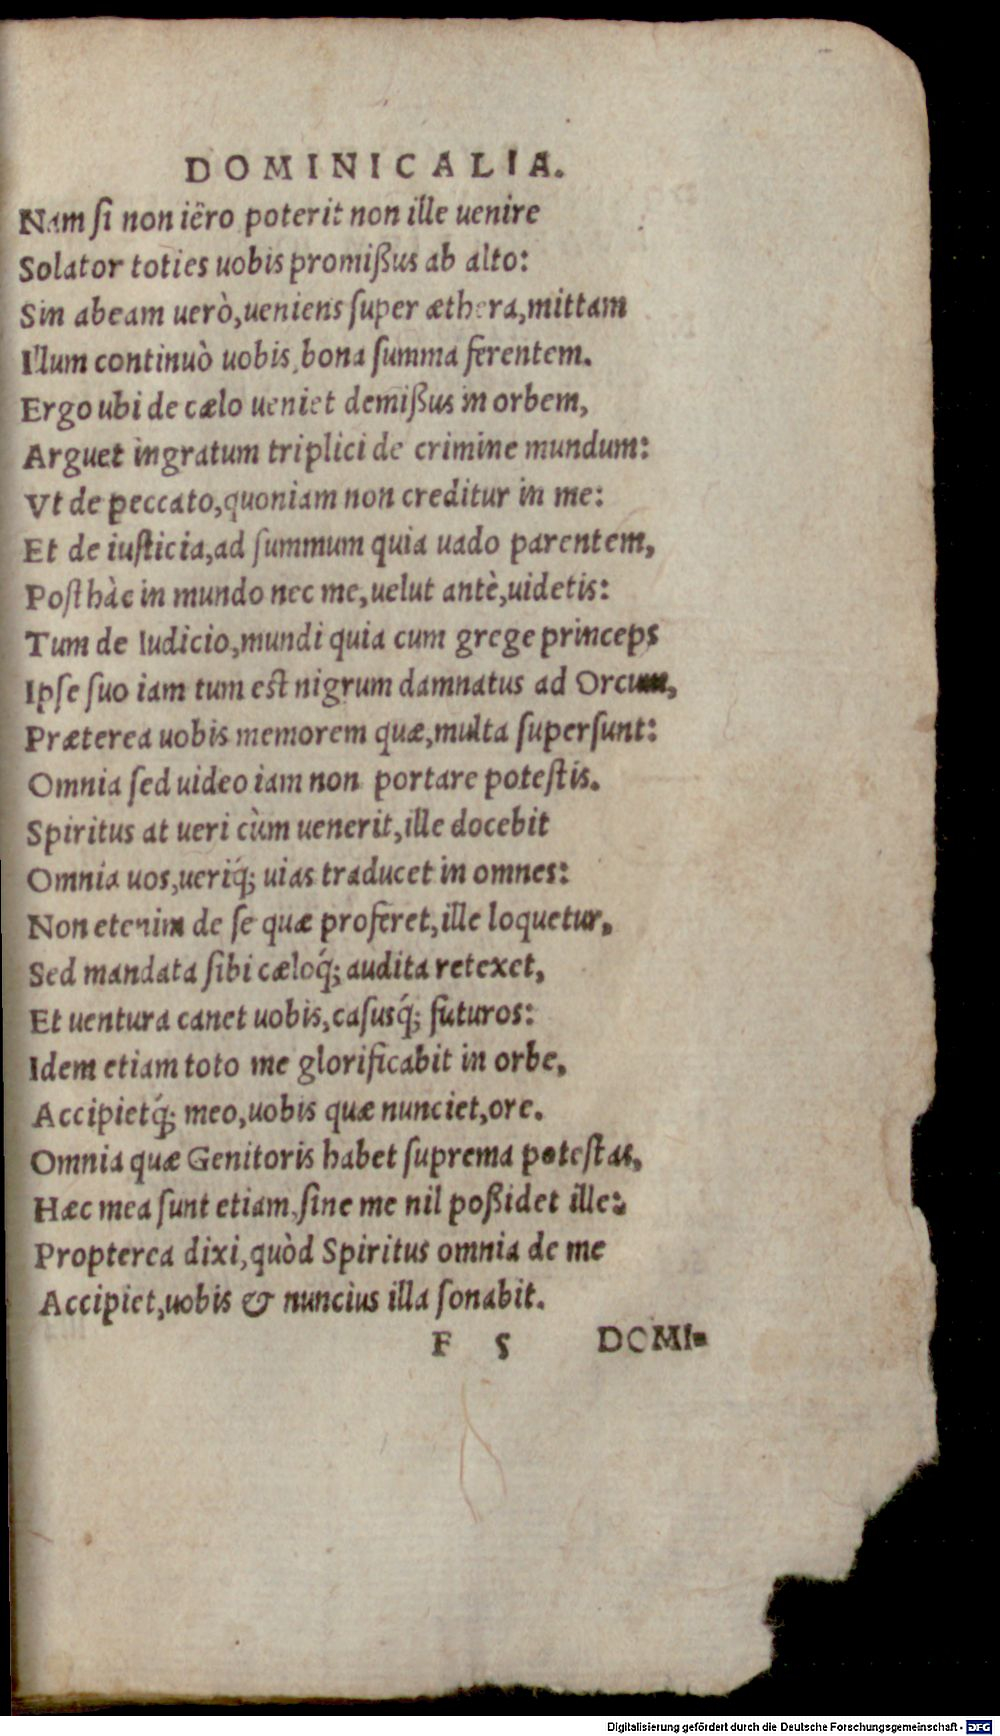 DOMINICALIA.
Nam ſi non iëro poterit non ille uenire
Solator toties uobis promißus ab alto:
Sin abeam uerò, ueniens ſuper æthera, mittam
Illum continuò uobis, bona ſumma ferentem.
Ergo ubi de cælo ueniet demißus in orbem,
Arguet ingratum triplici de crimine mundum:
Vt de peccato, quoniam non creditur in me:
Et de iuſticia, ad ſummum quia uado parentem,
Poſthàc in mundo nec me, uelut antè, uidetis:
Tum de Iudicio, mundi quia cum grege princeps
Ipſe ſuo iam tum est nigrum damnatus ad Orcum,
Præterea uobis memorem quæ, multa ſuperſunt:
Omnia ſed uideo iam non portare poteſtis.
Spiritus at ueri cùm uenerit, ille docebit
Omnia uos, ueriq́; uias traducet in omnes:
Non etenim de ſe quæ proferet, ille loquetur,
Sed mandata ſibi cæloq́; audita retexet,
Et uentura canet uobis, caſusq́; futuros:
Idem etiam toto me glorificabit in orbe,
Accipietq́; meo, uobis quæ nunciet, ore.
Omnia quæ Genitoris habet ſuprema poteſtas,
Hæc mea ſunt etiam, ſine me nil poßidet ille:
Propterea dixi, quòd Spiritus omnia de me
Accipiet, uobis & nuncius illa ſonabit.
F 5 DOMI=
Digitalisierung gefördert durch die Deutsche Forschungsgemeinschaft - DFG